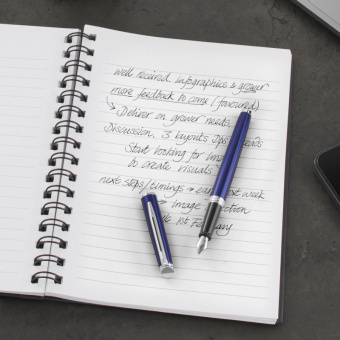 Well received infographics & grower
more feedback to come (favoured)
↳ Deliver on grower needs.
Discussion. 3 layouts Dps
Start looking for
to create visuals
next steps/timings → week
→ image
1st February